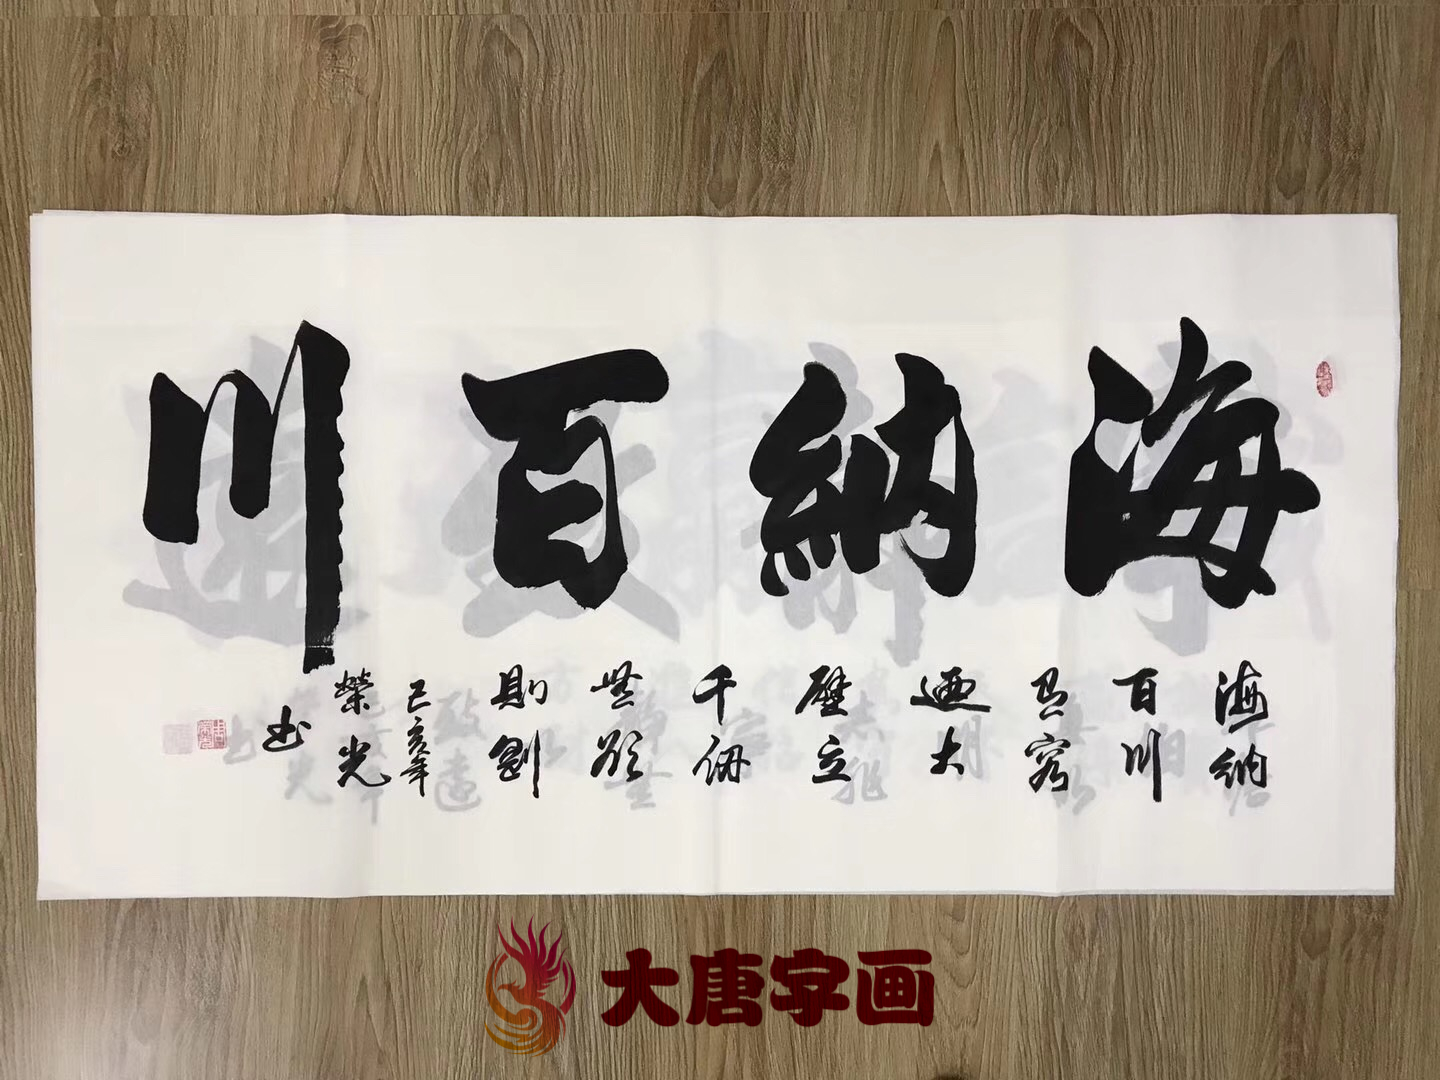 海納百川
海納
百川
有容
迺大
壁立
千仞
無欲
則剛
己亥年
榮光
书
大唐字画